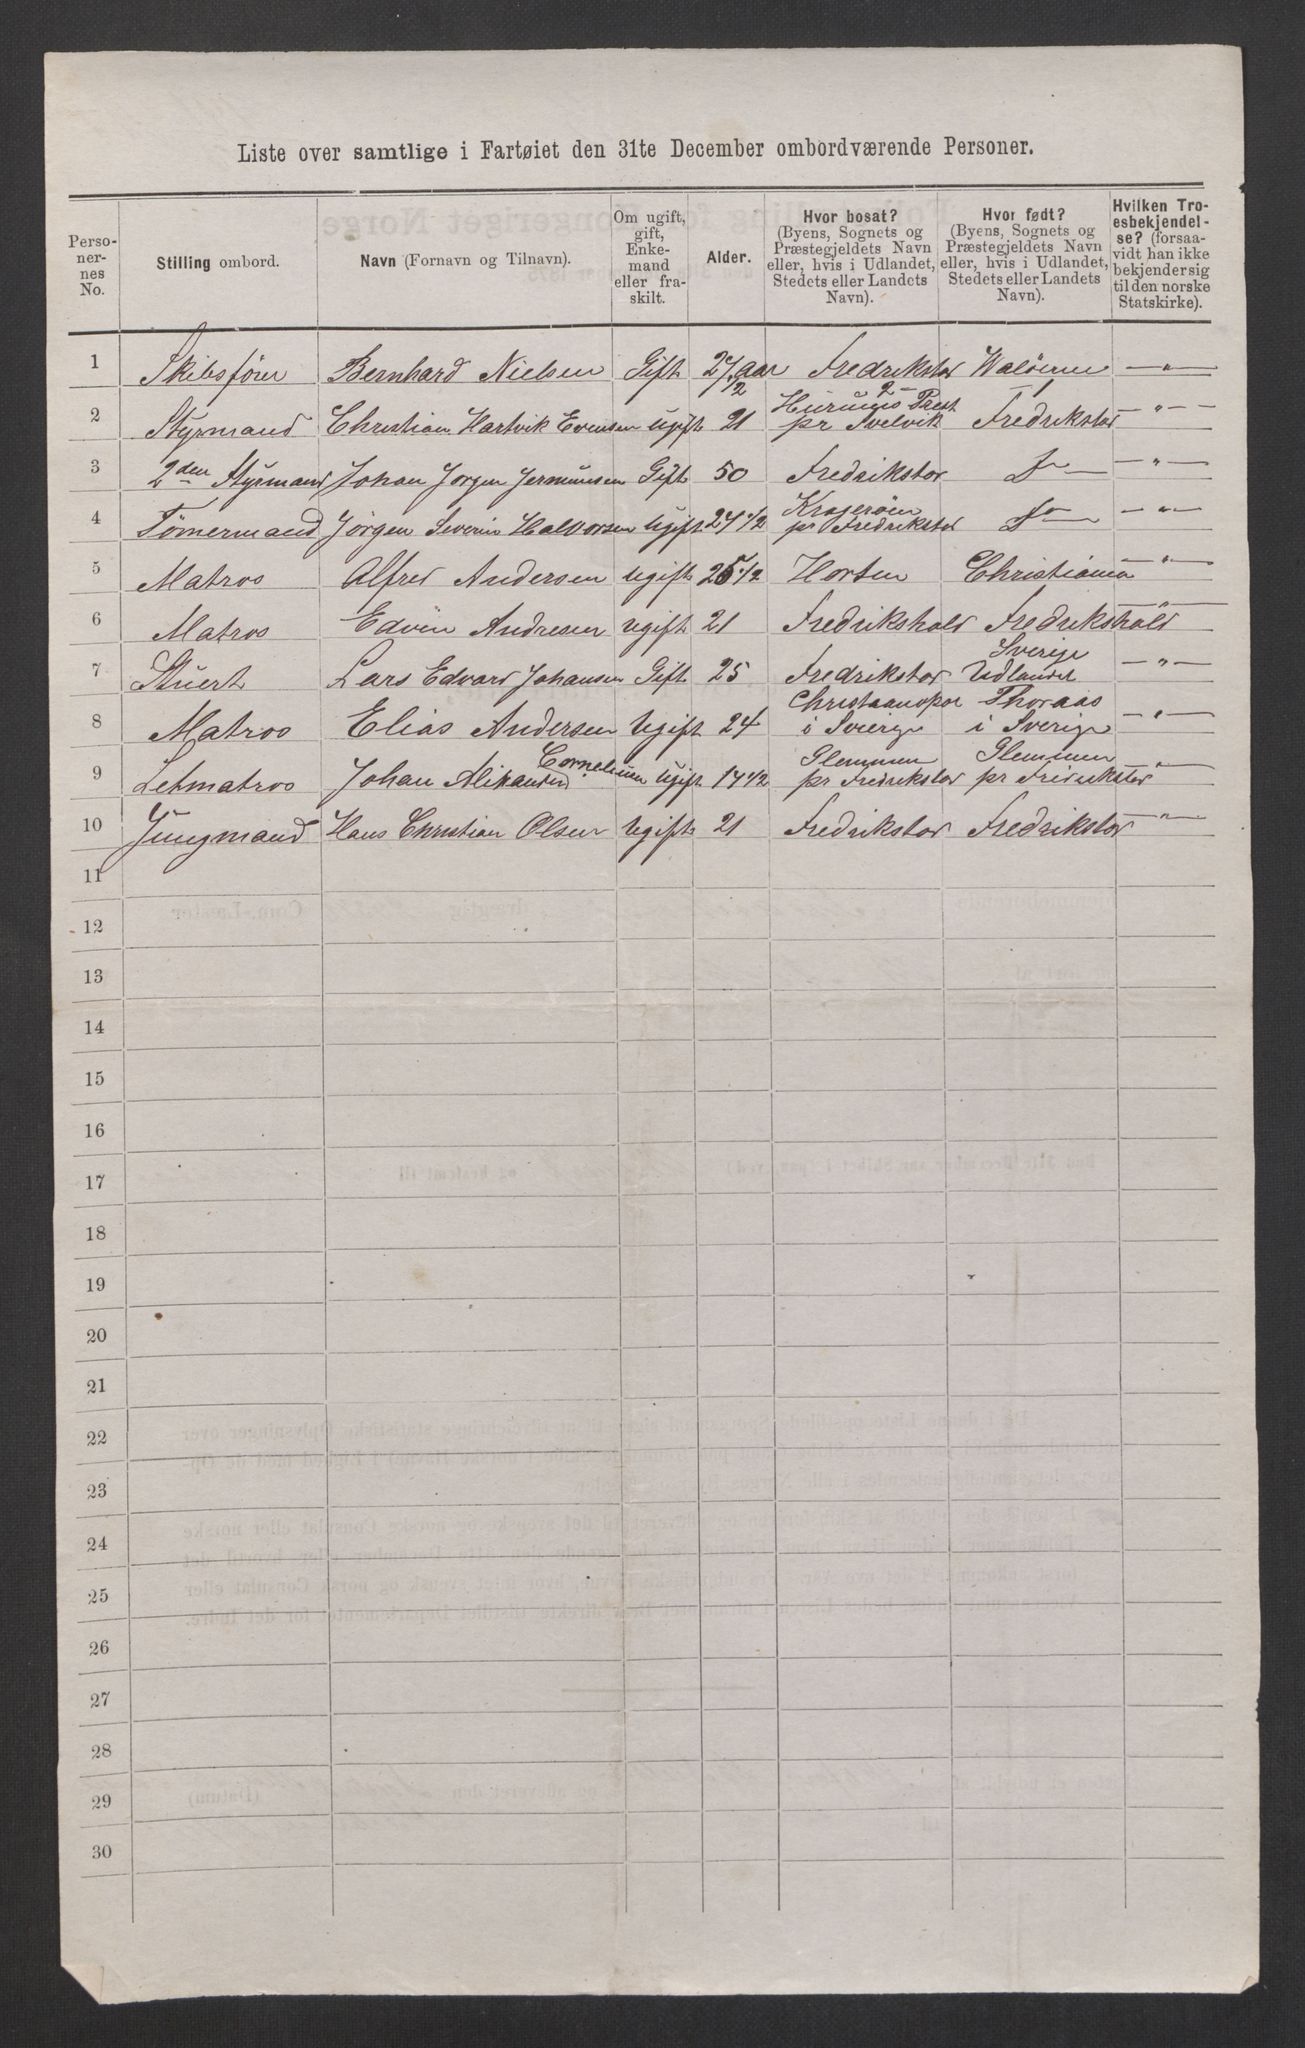 Liste over samtlige i Fartøiet den 31te December ombordværende Personer.
Perso-
ner-
nes
No.
Stilling ombord.
Navn (Fornavn og Tilnavn).
Om ugift,
gift,
Enke-
mand
eller fra-
skilt.
Alder.
Hvor bosat?
(Byens, Sognets og
Præstegjeldets Navn
eller, hvis i Udlandet,
Stedets eller Landets
Navn).
Hvor født?
(Byens, Sognets og
Præstegjeldets Navn
eller, hvis i Udlandet,
Stedets eller Landets
Navn).
Hvilken Tro-
esbekjendel-
se? (forsaa-
vidt han ikke
bekjender sig
til den norske
Statskirke).
1 Skibsförer Bernhard Nielsen Gift 27 1/2 aar Fredrikstad Walöerne — " —
2 Styrmand Christian Hartvik Evensen Ugift 21 Hurums Prest pr Svelvik Fredrikstad — " —
3 2den Styrmand Johan Jorgen Jermunsen Gift 50 Fredrikstad Do — " —
4 Tömermand Jörgen Severin Halvorsen Ugift 24 1/2 Kragerøen pr Fredrikstad Do — " —
5 Matros Alfred Andersen Ugift 25 1/2 Horten Christiania — " —
6 Matros Edvin Andresen Ugift 21 Fredrikshald Fredrikshald — " —
7 Stuert Lars Edvard Johansen Gift 25 Fredrikstad Sverige Udlandet — " —
8 Matros Elias Andersen Ugift 24 i Sverige Thoraas i Sverige — " —
9 Letmatros Johan Alixander Cornelium Ugift 17 1/2 Glemmen pr Fredrikstad Glemmen pr Fredrikstad "
10 Jungmand Hans Christian Olsen Ugift 21 Fredrikstad Fredrikstad — " —
11
12
13
14
15
16
17
18
19
20
21
22
23
24
25
26
27
28
29
30